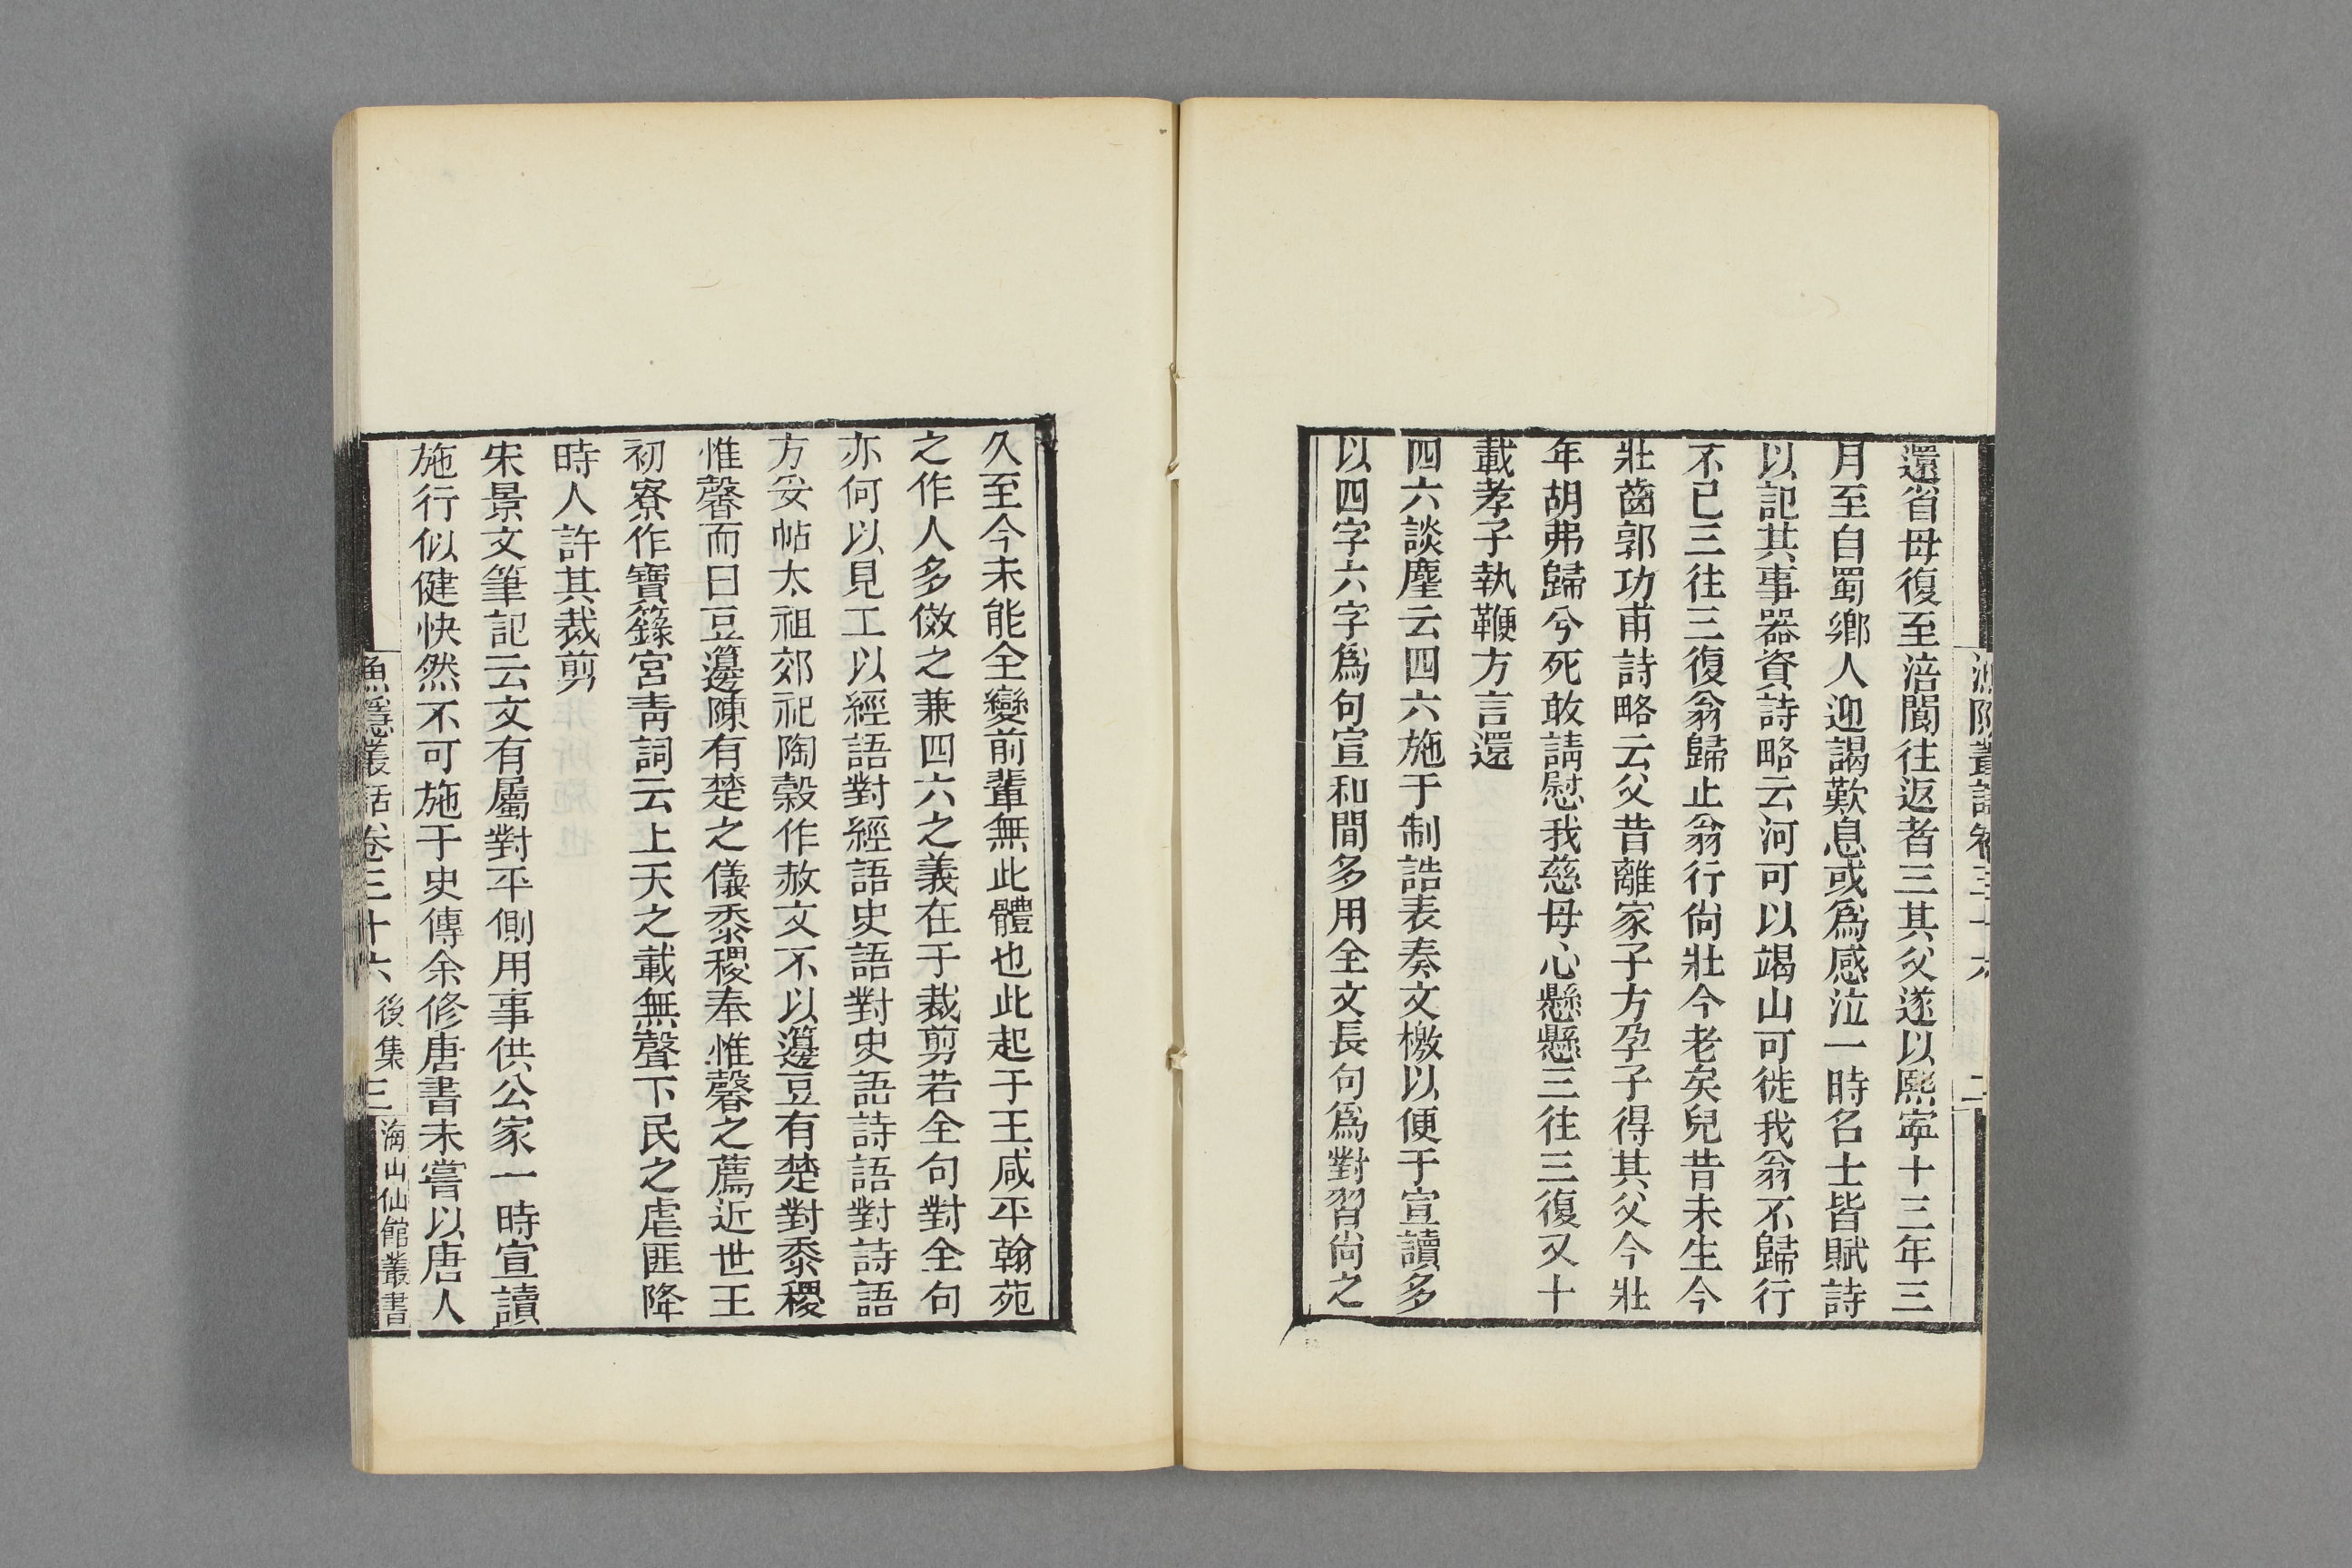 還省母復至涪閬往返者三其父遂以熙寧十三年三
月至自蜀鄉人迎謁歎息或爲感泣一時名士皆賦詩
以記其事器資詩略云河可以竭山可徙我翁不歸行
不已三往三復翁歸止翁行尙壯今老矣兒昔未生今
壯齒郭功甫詩略云父昔離家子方孕子得其父今壯
年胡弗歸兮死敢請慰我慈母心懸懸三往三復又十
載孝子執鞭方言還
四六談麈云四六施于制誥表奏文檄以便于宣讀多
以四字六字爲句宣和間多用全文長句爲對習尙之
久至今未能全變前輩無此體也此起于王咸平翰苑
之作人多倣之兼四六之義在于裁剪若全句對全句
亦何以見工以經語對經語史語對史語詩語對詩語
方妥帖太祖郊祀陶穀作赦文不以籩豆有楚對黍稷
惟馨而曰豆籩陳有楚之儀黍稷奉惟馨之薦近世王
初寮作寶籙宮靑詞云上天之載無聲下民之虐匪降
時人許其裁剪
宋景文筆記云文有屬對平側用事供公家一時宣讀
施行似健快然不可施于史傳余修唐書未嘗以唐人
漁隱叢話卷三十六 後集 三 海山仙館叢書